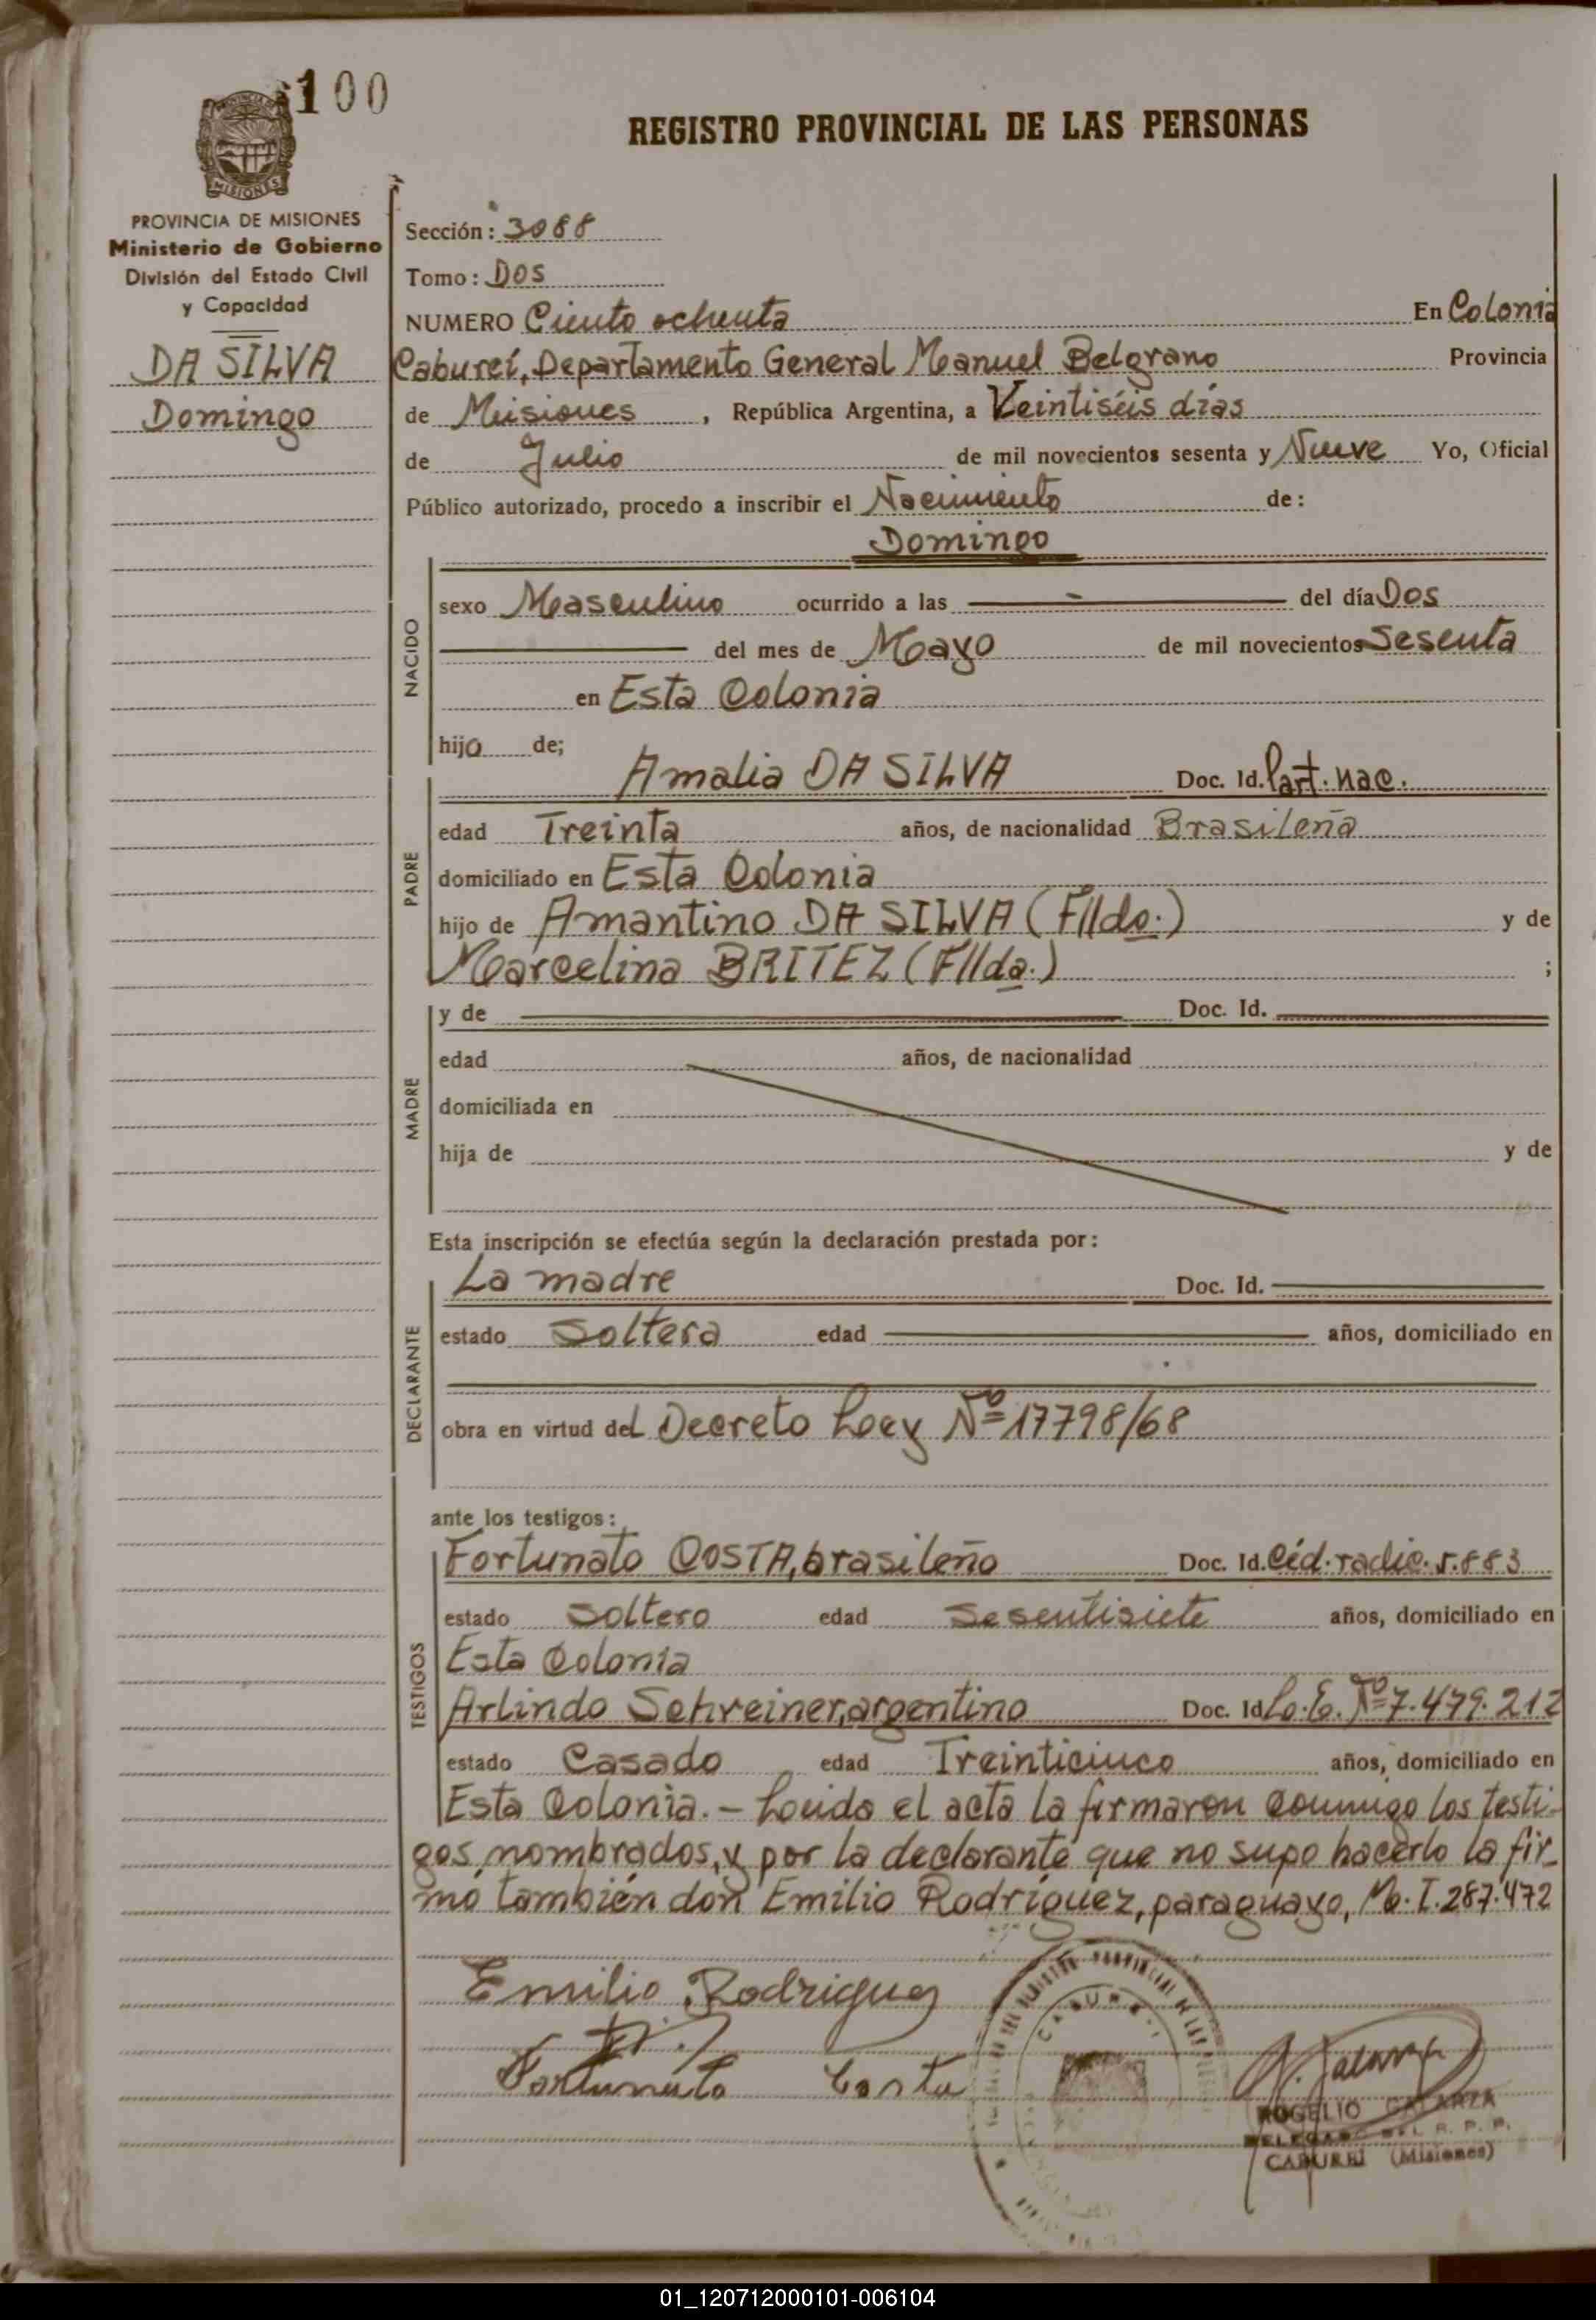 100
REGISTRO PROVINCIAL DE LAS PERSONAS
PROVINCIA DE MISIONES
Ministerio de Gobierno
División del Estado Civil
y Capacidad
DA SILVA
Domingo
Sección: 3088
Tomo: DOS
NUMERO Ciento ochenta En Colonia
Cabureí, Departamento General Manuel Belgrano Provincia
de Misiones, República Argentina, a Veintiséis días
de Julio de mil novecientos sesenta y Nueve Yo, Oficial
Público autorizado, procedo a inscribir el Nacimiento de:
Domingo
NACIDO
sexo Masculino ocurrido a las del día Dos
del mes de Mayo de mil novecientos Sesenta
en Esta Colonia
hijo de;
PADRE
Amalia DA SILVA Doc. Id. Part. nac.
edad Treinta años, de nacionalidad Brasileña
domiciliado en Esta Colonia
hijo de Amantino DA SILVA (Flldo.) y de
Marcelina BRITEZ (Fllda.) ;
MADRE
y de Doc. Id.
edad años, de nacionalidad
domiciliada en
hija de y de
Esta inscripción se efectúa según la declaración prestada por:
DECLARANTE
La madre Doc. Id.
estado Soltera edad años, domiciliado en
obra en virtud del Decreto Ley Nº 17798/68
ante los testigos:
TESTIGOS
Fortunato COSTA, brasileño Doc. Id. Céd. radic. 5.883
estado Soltero edad Sesentisiete años, domiciliado en
Esta Colonia
Arlindo Schreiner, argentino Doc. Id L.E. Nº 7.479.212
estado Casado edad Treinticinco años, domiciliado en
Esta Colonia. - Leída el acta la firmaron conmigo los testi-
gos nombrados, y por la declarante que no supo hacerlo la fir-
mó también don Emilio Rodríguez, paraguayo, M.I. 287.472
Emilio Rodriguez
Fortunato Costa
CABUREI
ROGELIO GALARZA
DELEGADO DEL R. P. P.
CABUREI (Misiones)
01_120712000101-006104